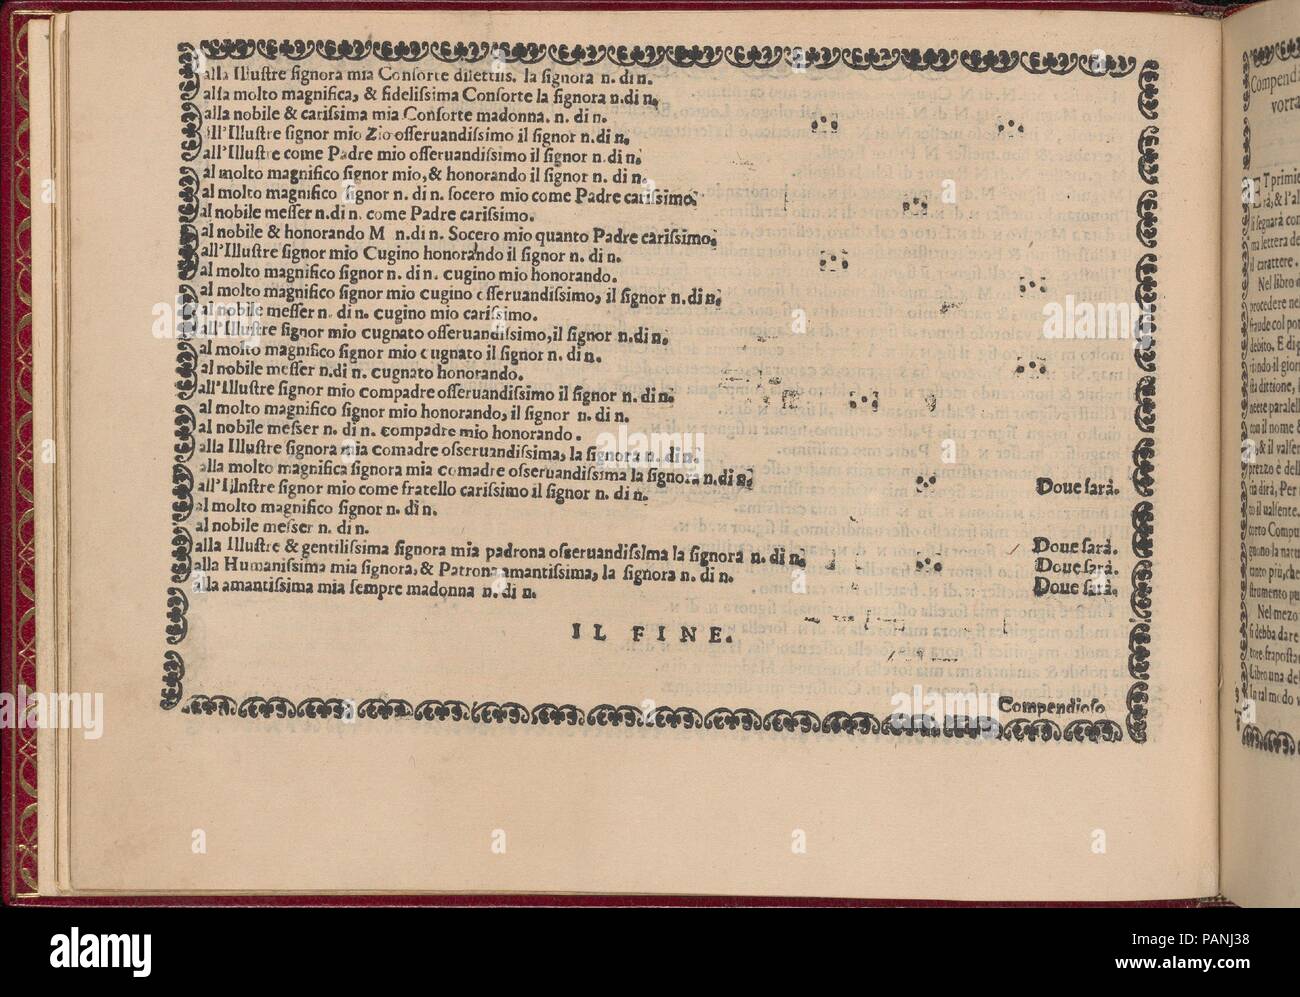 alla Illustre signora mia Consorte dilettis. la signora n. di n.
alla molto magnifica, & fidelissima Consorte la signora n.di n.
alla nobile & carissima mia Consorte madonna. n. di n.
all'Illustre signor mio Zio osseruandissimo il signor n.di n.
all'Illustre come Padre mio osseruandissimo il signor n.di n.
al molto magnifico signor mio,& honorando il signor n. di n.
al molto magnifico signor n. di n. socero mio come Padre carissimo.
al nobile messer n.di n. come Padre carissimo.
al nobile & honorando M n.di n. Socero mio quanto Padre carissimo.
all'Illustre signor mio Cugino honorando il signor n. di n.
al molto magnifico signor n. di n. cugino mio honorando.
al molto magnifico signor mio cugino osseruandissimo, il signor n.di n.
al nobile messer n. di n. cugino mio carissimo.
all'Illustre signor mio cugnato osseruandissimo,il signor n.di n.
al molto magnifico signor mio cugnato il signor n. di n.
al nobile messer n.di n. cugnato honorando.
all'Illustre signor mio compadre osseruandissimo il signor n. di n.
al molto magnifico signor mio honorando, il signor n. di n.
al nobile messer n. di n. compadre mio honorando.
alla Illustre signora mia comadre osseruandissima, la signora n. di n.
alla molto magnifica signora mia comadre osseruandissima la signora n.di n.
all'Illnstre signor mio come fratello carissimo il signor n. di n. Doue sarà.
al molto magnifico signor n. di n.
al nobile messer n. di n.
alla Illustre & gentilissima signora mia padrona osseruandissima la signora n. di n. Doue sarà.
alla Humanissima mia signora, & Patrona amantissima, la signora n. di n. Doue sarà.
alla amantissima mia sempre madonna n. di n. Doue sarà.
IL FINE.
Compendioso
Compend
vorra
ET primie
rà, & l'al
si segnarà con
ma lettera de
il carattere.
Nel libro
procedere ne
fraude col pot
debito. E di
stando il gior
sia dittione,
neete paralell
con il nome &
& il valsen
prezzo è dell
sia dirà, Per
to il ualsente.
certo Compu
gnano la natu
tanto più,che
strumento pu
Nel mezo
si debba dare
tore.frapostan
Libro una del
in tal modo
alamy
Image ID: PANJ38
www.alamy.com